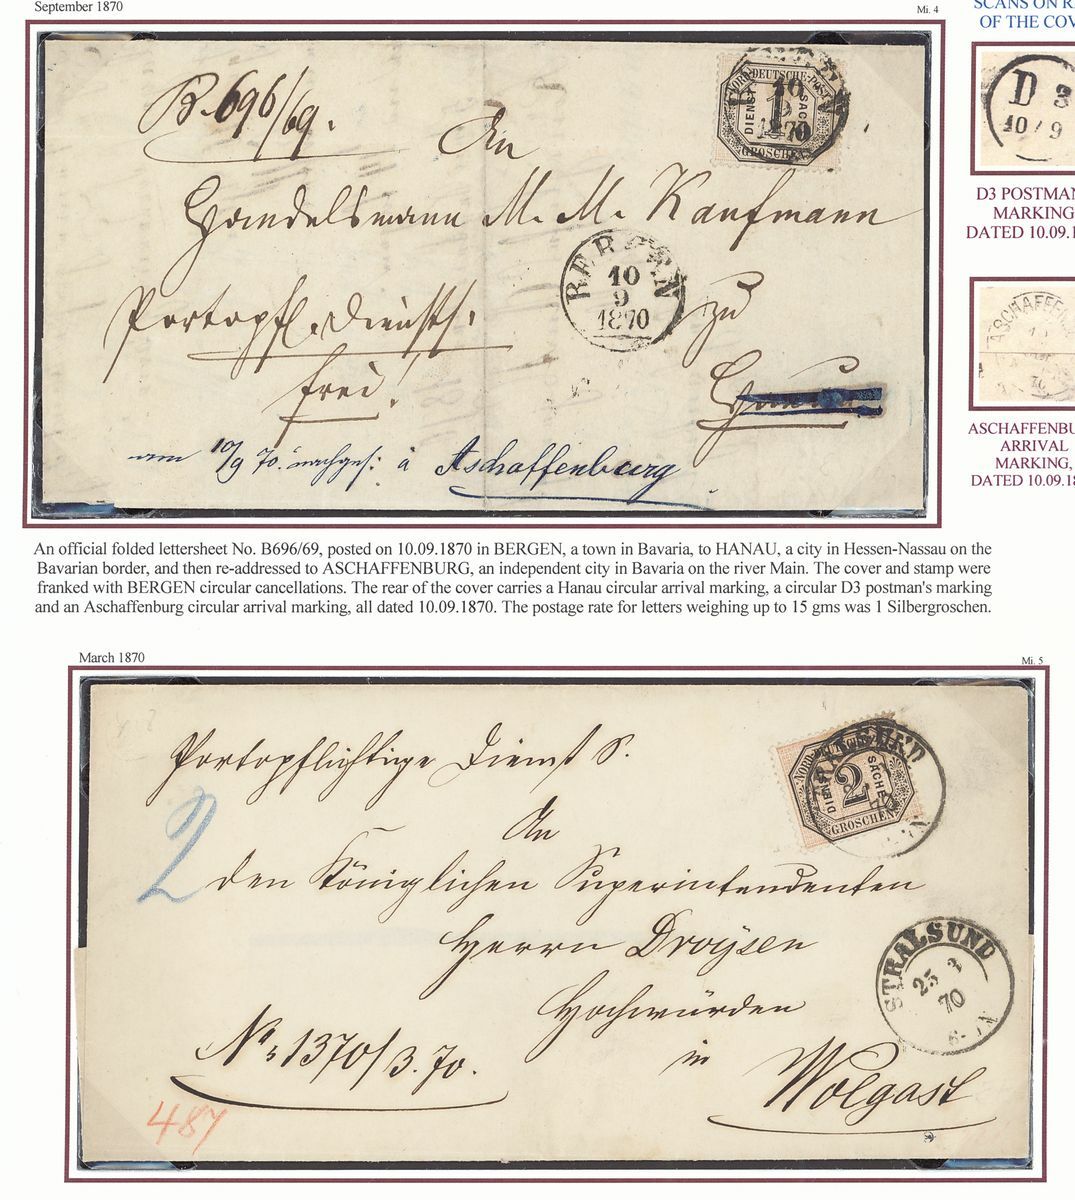 September 1870
Mi. 4
SCANS ON R
OF THE COV
B. 696/69.
An
Handelsmann M. M. Kaufmann
Portopfl. Dienstf.
frei!
zu
am 10/9 70. nachges: à Aschaffenburg
NORD DEUTSCHE POST
DIENST SACHE
1
GROSCHEN
10
9
1870
BERGEN
10
9
1870
D 3
10/9
D3 POSTMAN
MARKING
DATED 10.09.1
ASCHAFFEN
ASCHAFFENBU
ARRIVAL
MARKING,
DATED 10.09.18
An official folded lettersheet No. B696/69, posted on 10.09.1870 in BERGEN, a town in Bavaria, to HANAU, a city in Hessen-Nassau on the
Bavarian border, and then re-addressed to ASCHAFFENBURG, an independent city in Bavaria on the river Main. The cover and stamp were
franked with BERGEN circular cancellations. The rear of the cover carries a Hanau circular arrival marking, a circular D3 postman's marking
and an Aschaffenburg circular arrival marking, all dated 10.09.1870. The postage rate for letters weighing up to 15 gms was 1 Silbergroschen.
March 1870
Mi. 5
Portopflichtige Dienst S.
2
An
den Königlichen Superintendenten
Herrn Droysen
Hochwürden
in
Wolgast
No. 1370/3.70.
487
DIENST SACHE
2
GROSCHEN
STRALSUND
25 3
70